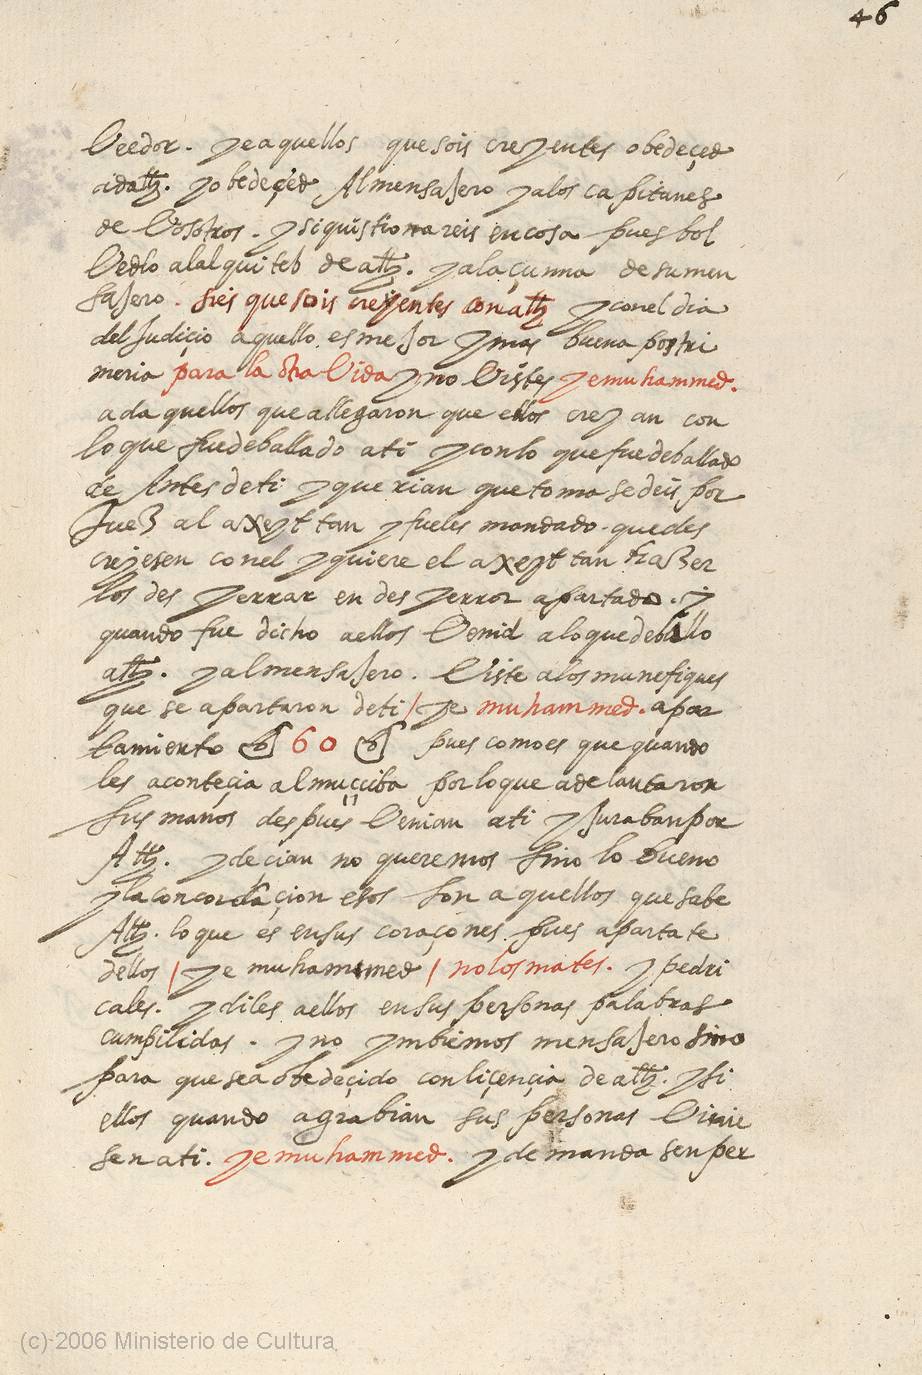 46
Veedor. yeaquellos quesois creyentes obedeçed
adallh. yobedeçed Almensajero yalos capitanes
de Vosotros. ysiquistionareis encosa pues bol
Vedlo alalquiteb de allh. yalaçunna desumen
sajero. sieis que sois creyentes con allh yconel dia
del Judiçio aquello esmejor ymas buena postri
meria para la otra Vida yno Vistes yemuhammed.
ada quellos queallegaron que ellos creyan con
loque fuedeballado ati yconlo quefuedeballado
de Antesdeti yquerian quetomasedeis por
Juez al axeyttan yfueles mandado. quedes
creyesen conel yquiere el axeyttan hazer
los des yerrar en des yerror apartado. y
quando fue dicho aellos Venid aloquedeballo
allh. yalmensajero. Viste alosmunefiques
que se apartaron deti / ye muhammed. apar
tamiento 60 pues comoes que quando
les aconteçia almuçciba porloque adelantaron
sus manos despues Venian ati yjurabanpor
Allh. ydecian no queremos sino lo bueno
ylaconcordaçion esos son aquellos quesabe
Allh. loque es ensus coraçones. pues apartate
dellos / ye muhammed / nolosmates. ypedri
cales. ydiles aellos ensus personas palabras
cumplidas. yno ymbiemos mensajero sino
para quesea obedeçido conliçençia deallh. ysi
ellos quando agrabian sus personas Vinie
senati. yemuhammed. ydemandasenper
(c) 2006 Ministerio de Cultura